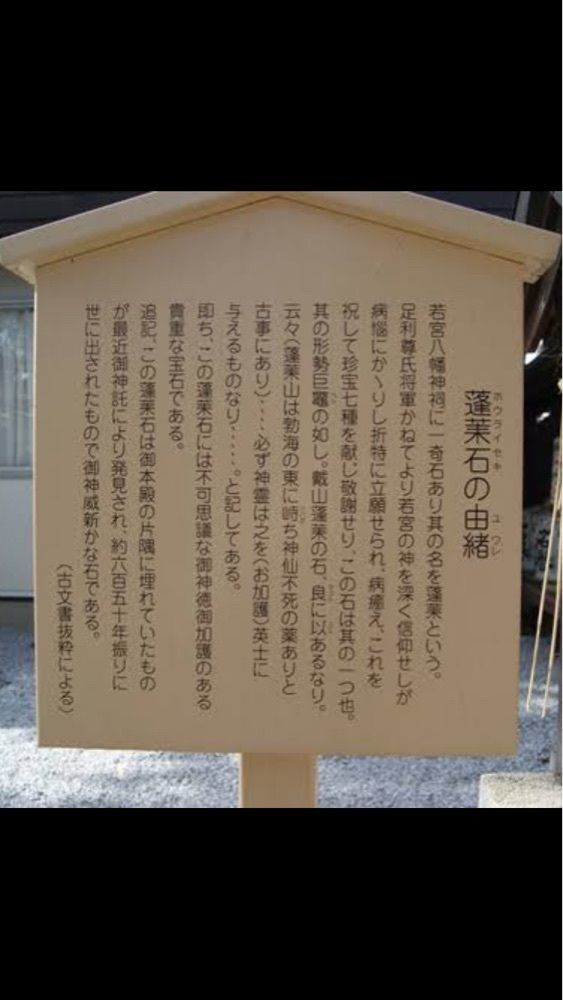 蓬莱石の由緒
ホウライセキ ユワレ
若宮八幡神祠に一奇石あり其の名を蓬莱という。
足利尊氏将軍かねてより若宮の神を深く信仰せしが
病悩にかゝりし折特に立願せられ、病癒え、これを
祝して珍宝七種を献じ敬謝せり、この石は其の一つ也。
其の形勢巨鼇の如し。戴山蓬莱の石、良に以あるなり。
云々(蓬莱山は勃海の東に峙ち神仙不死の薬ありと
古事にあり)‥‥必ず神霊は之を(お加護)英士に
与えるものなり‥‥‥。と記してある。
即ち、この蓬莱石には不可思議な御神徳御加護のある
貴重な宝石である。
追記、この蓬莱石は御本殿の片隅に埋れていたもの
が最近御神託により発見され、約六百五十年振りに
世に出されたもので御神威新かな石である。
(古文書抜粋による)